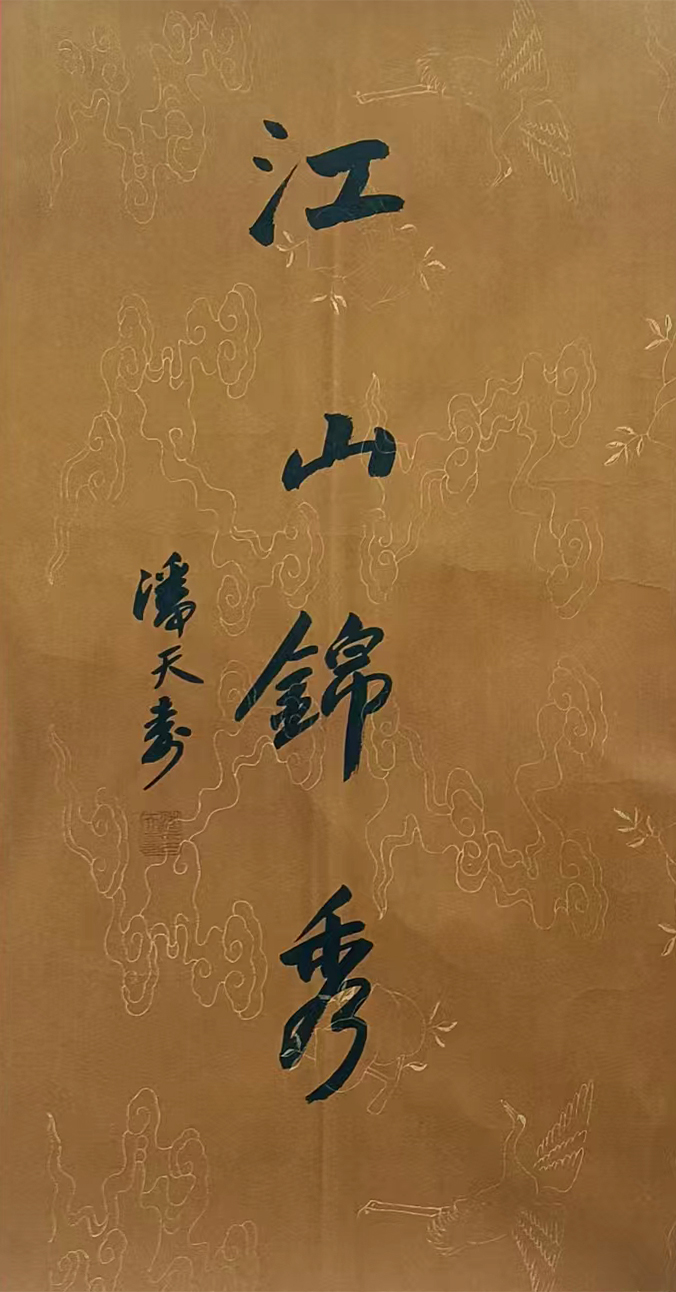 江山錦秀
潘天壽